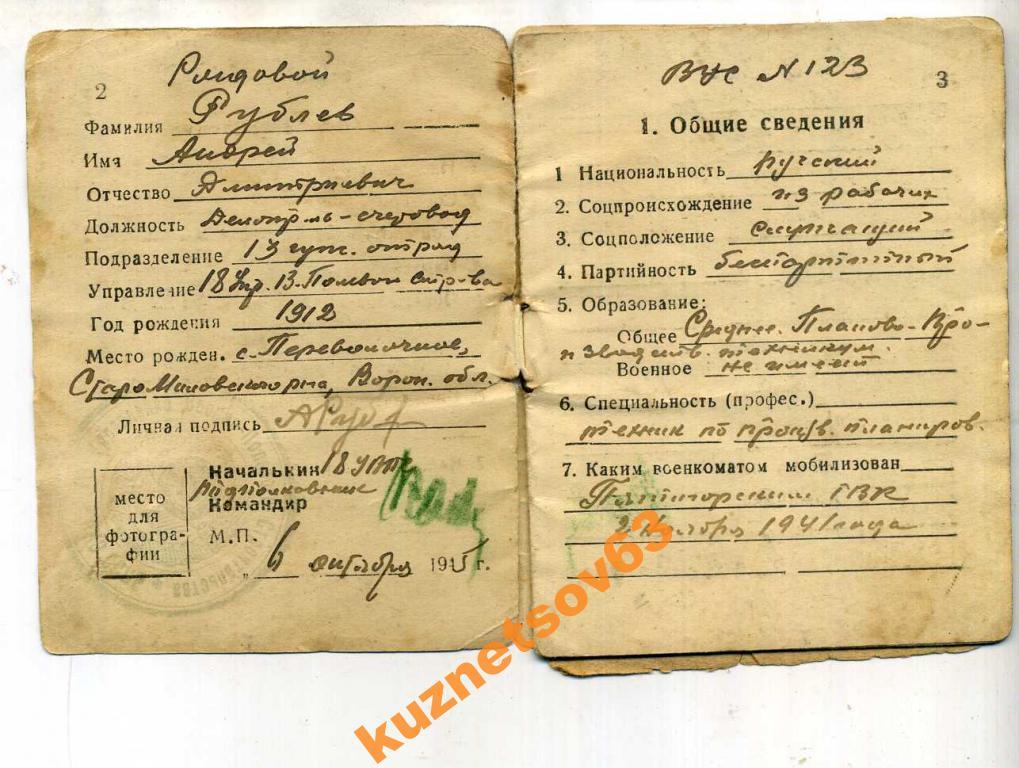 2
Рядовой
Фамилия Рублев
Имя Андрей
Отчество Дмитриевич
Должность Делопр-ль-счетовод
Подразделение 13 гуж. отряд
Управление 18 Упр. 13 Полевон стр-ва
Год рождения 1912
Место рожден. с. Переволочное,
Ворон. обл.
Личная подпись АРуб
Начальник 18 УВП
Подполковник
Командир
место
для
фотогра-
фии
М.П.
„ 6 октября 1945 г.
ВУС N 123
3
1. Общие сведения
1 Национальность русский
2. Соцпроисхождение из рабочих
3. Соцположение служащий
4. Партийность беспартийный
5. Образование:
Общее Среднее. Планово-Про-
изводств. техникум.
Военное не имеет
6. Специальность (професс.)
техник по произв. планиров.
7. Каким военкоматом мобилизован
Пятигорским ГВК
1941 года
kuznetsov63